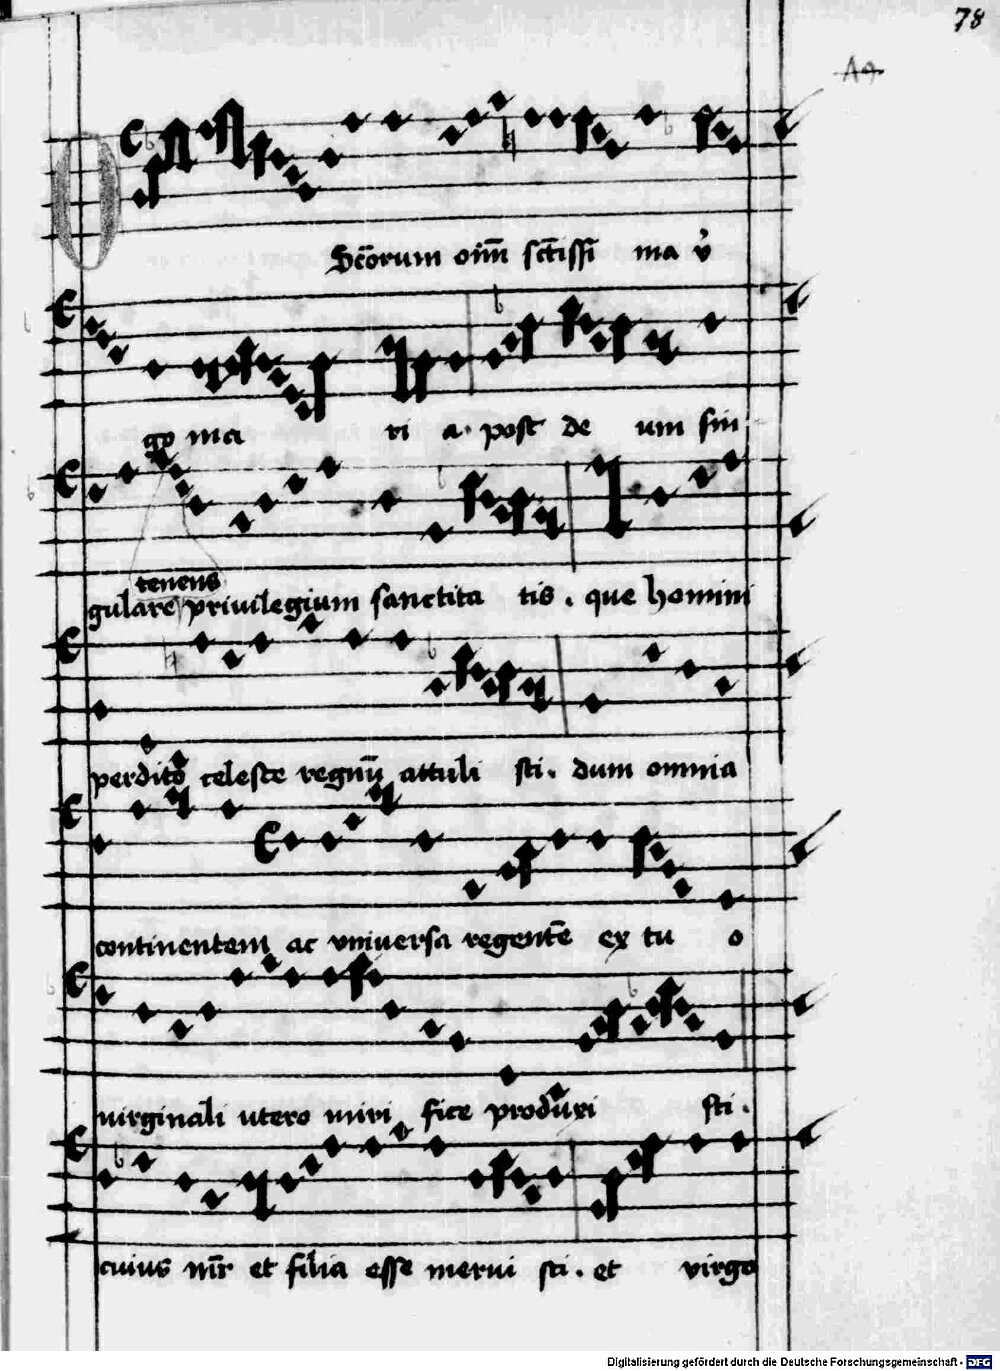 78
A9
O
Sc̄orum oīm̄ sc̄tissi ma v̄
go ma ri a · post de um sin
tenens
gulare privilegium sanctita tis . que homini
perdito celeste regnū attuli sti . dum omnia
continentem ac universa regentē ex tu o
virginali utero miri fice produxi sti .
cuius mr̄ et filia esse merui sti . et virgo
Digitalisierung gefördert durch die Deutsche Forschungsgemeinschaft - DFG